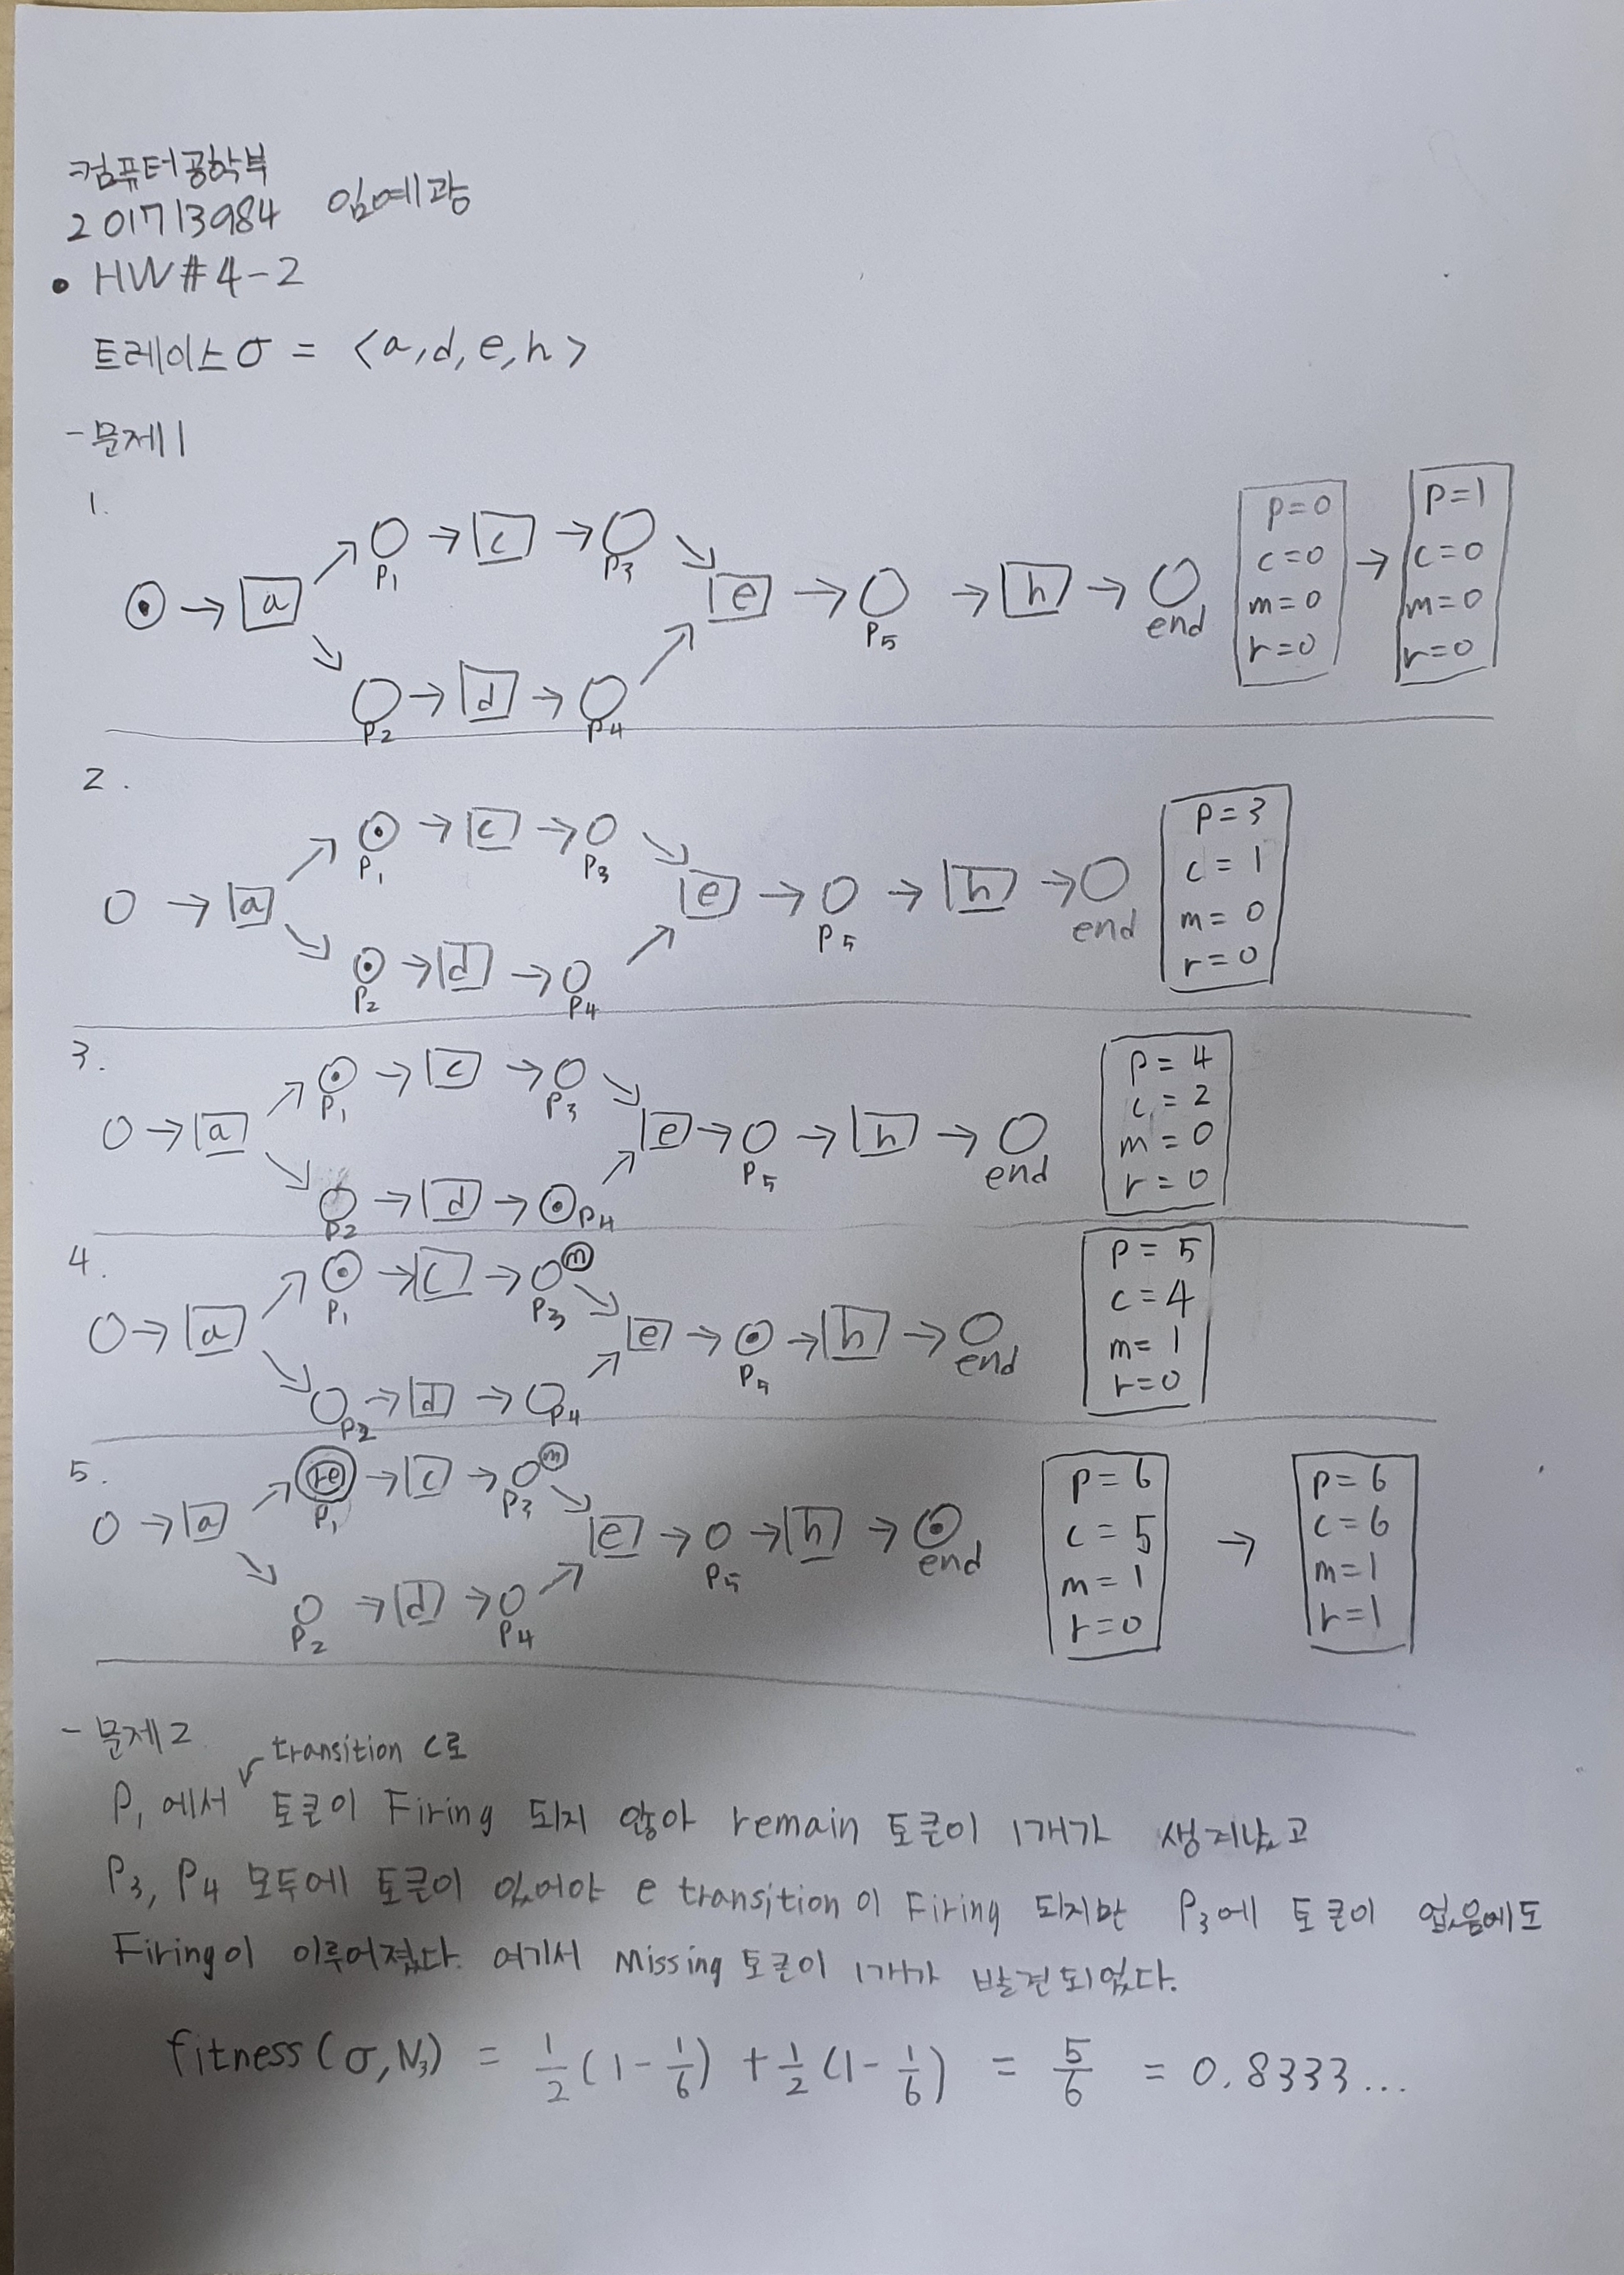 컴퓨터공학부
201713984 임예광
• HW#4-2
트레이스 σ = <a,d,e,h>
- 문제1
1.
a p1 c p3 e p5 h end
p2 d p4
p=0 → p=1
c=0 c=0
m=0 m=0
r=0 r=0
2.
a p1 c p3 e p5 h end
p2 d p4
p=3
c=1
m=0
r=0
3.
a p1 c p3 e p5 h end
p2 d p4
p=4
c=2
m=0
r=0
4.
a p1 c p3 m e p5 h end
p2 d p4
p=5
c=4
m=1
r=0
5.
a re p1 c p3 m e p5 h end
p2 d p4
p=6 → p=6
c=5 c=6
m=1 m=1
r=0 r=1
- 문제2
transition c로
P1에서 토큰이 Firing 되지 않아 remain 토큰이 1개가 생겨났고
P3, P4 모두에 토큰이 있어야 e transition이 Firing 되지만 P3에 토큰이 없음에도
Firing이 이루어졌다. 여기서 Missing 토큰이 1개가 발견되었다.
fitness(σ,N3) = 1/2(1-1/6) + 1/2(1-1/6) = 5/6 = 0.8333...